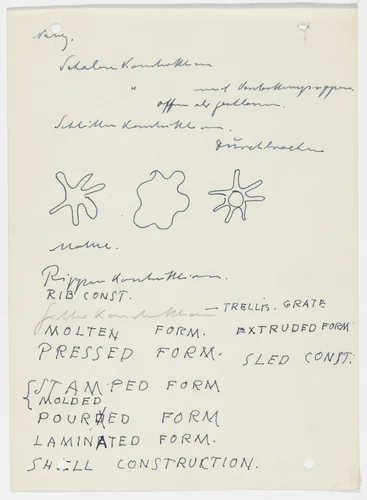 Schalen Konstruktion
" und Verstärkungsrippen
offen als geschlossen.
Schlitten Konstruktion.
Durchbrochen
Natur.
Rippen Konstruktion.
RIB CONST.
Gitter Konstruktion — TRELLIS. GRATE
MOLTEN FORM. EXTRUDED FORM
PRESSED FORM. SLED CONST.
STAMPED FORM
MOLDED
POURED FORM
LAMINATED FORM.
SHELL CONSTRUCTION.